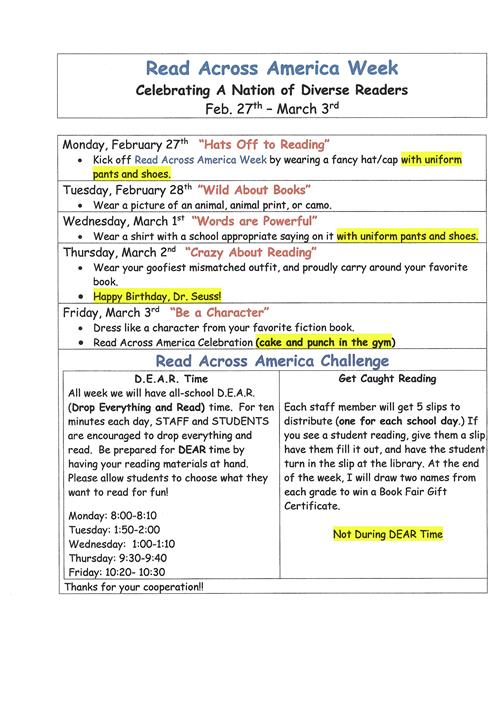 Read Across America Week
Celebrating A Nation of Diverse Readers
Feb. 27th – March 3rd
Monday, February 27th "Hats Off to Reading"
• Kick off Read Across America Week by wearing a fancy hat/cap with uniform
pants and shoes.
Tuesday, February 28th "Wild About Books"
• Wear a picture of an animal, animal print, or camo.
Wednesday, March 1st "Words are Powerful"
• Wear a shirt with a school appropriate saying on it with uniform pants and shoes.
Thursday, March 2nd "Crazy About Reading"
• Wear your goofiest mismatched outfit, and proudly carry around your favorite
book.
• Happy Birthday, Dr. Seuss!
Friday, March 3rd "Be a Character"
• Dress like a character from your favorite fiction book.
• Read Across America Celebration (cake and punch in the gym)
Read Across America Challenge
D.E.A.R. Time
All week we will have all-school D.E.A.R.
(Drop Everything and Read) time. For ten
minutes each day, STAFF and STUDENTS
are encouraged to drop everything and
read. Be prepared for DEAR time by
having your reading materials at hand.
Please allow students to choose what they
want to read for fun!
Monday: 8:00-8:10
Tuesday: 1:50-2:00
Wednesday: 1:00-1:10
Thursday: 9:30-9:40
Friday: 10:20- 10:30
Get Caught Reading
Each staff member will get 5 slips to
distribute (one for each school day.) If
you see a student reading, give them a slip,
have them fill it out, and have the student
turn in the slip at the library. At the end
of the week, I will draw two names from
each grade to win a Book Fair Gift
Certificate.
Not During DEAR Time
Thanks for your cooperation!!